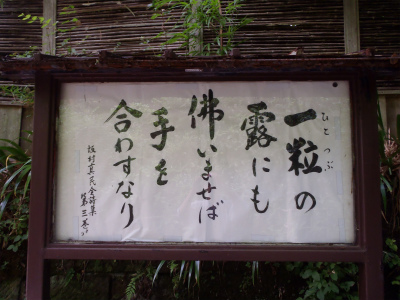 一粒の
ひとつぶ
露にも
佛いませば
手を
合わすなり
坂村真民全詩集
第三巻より